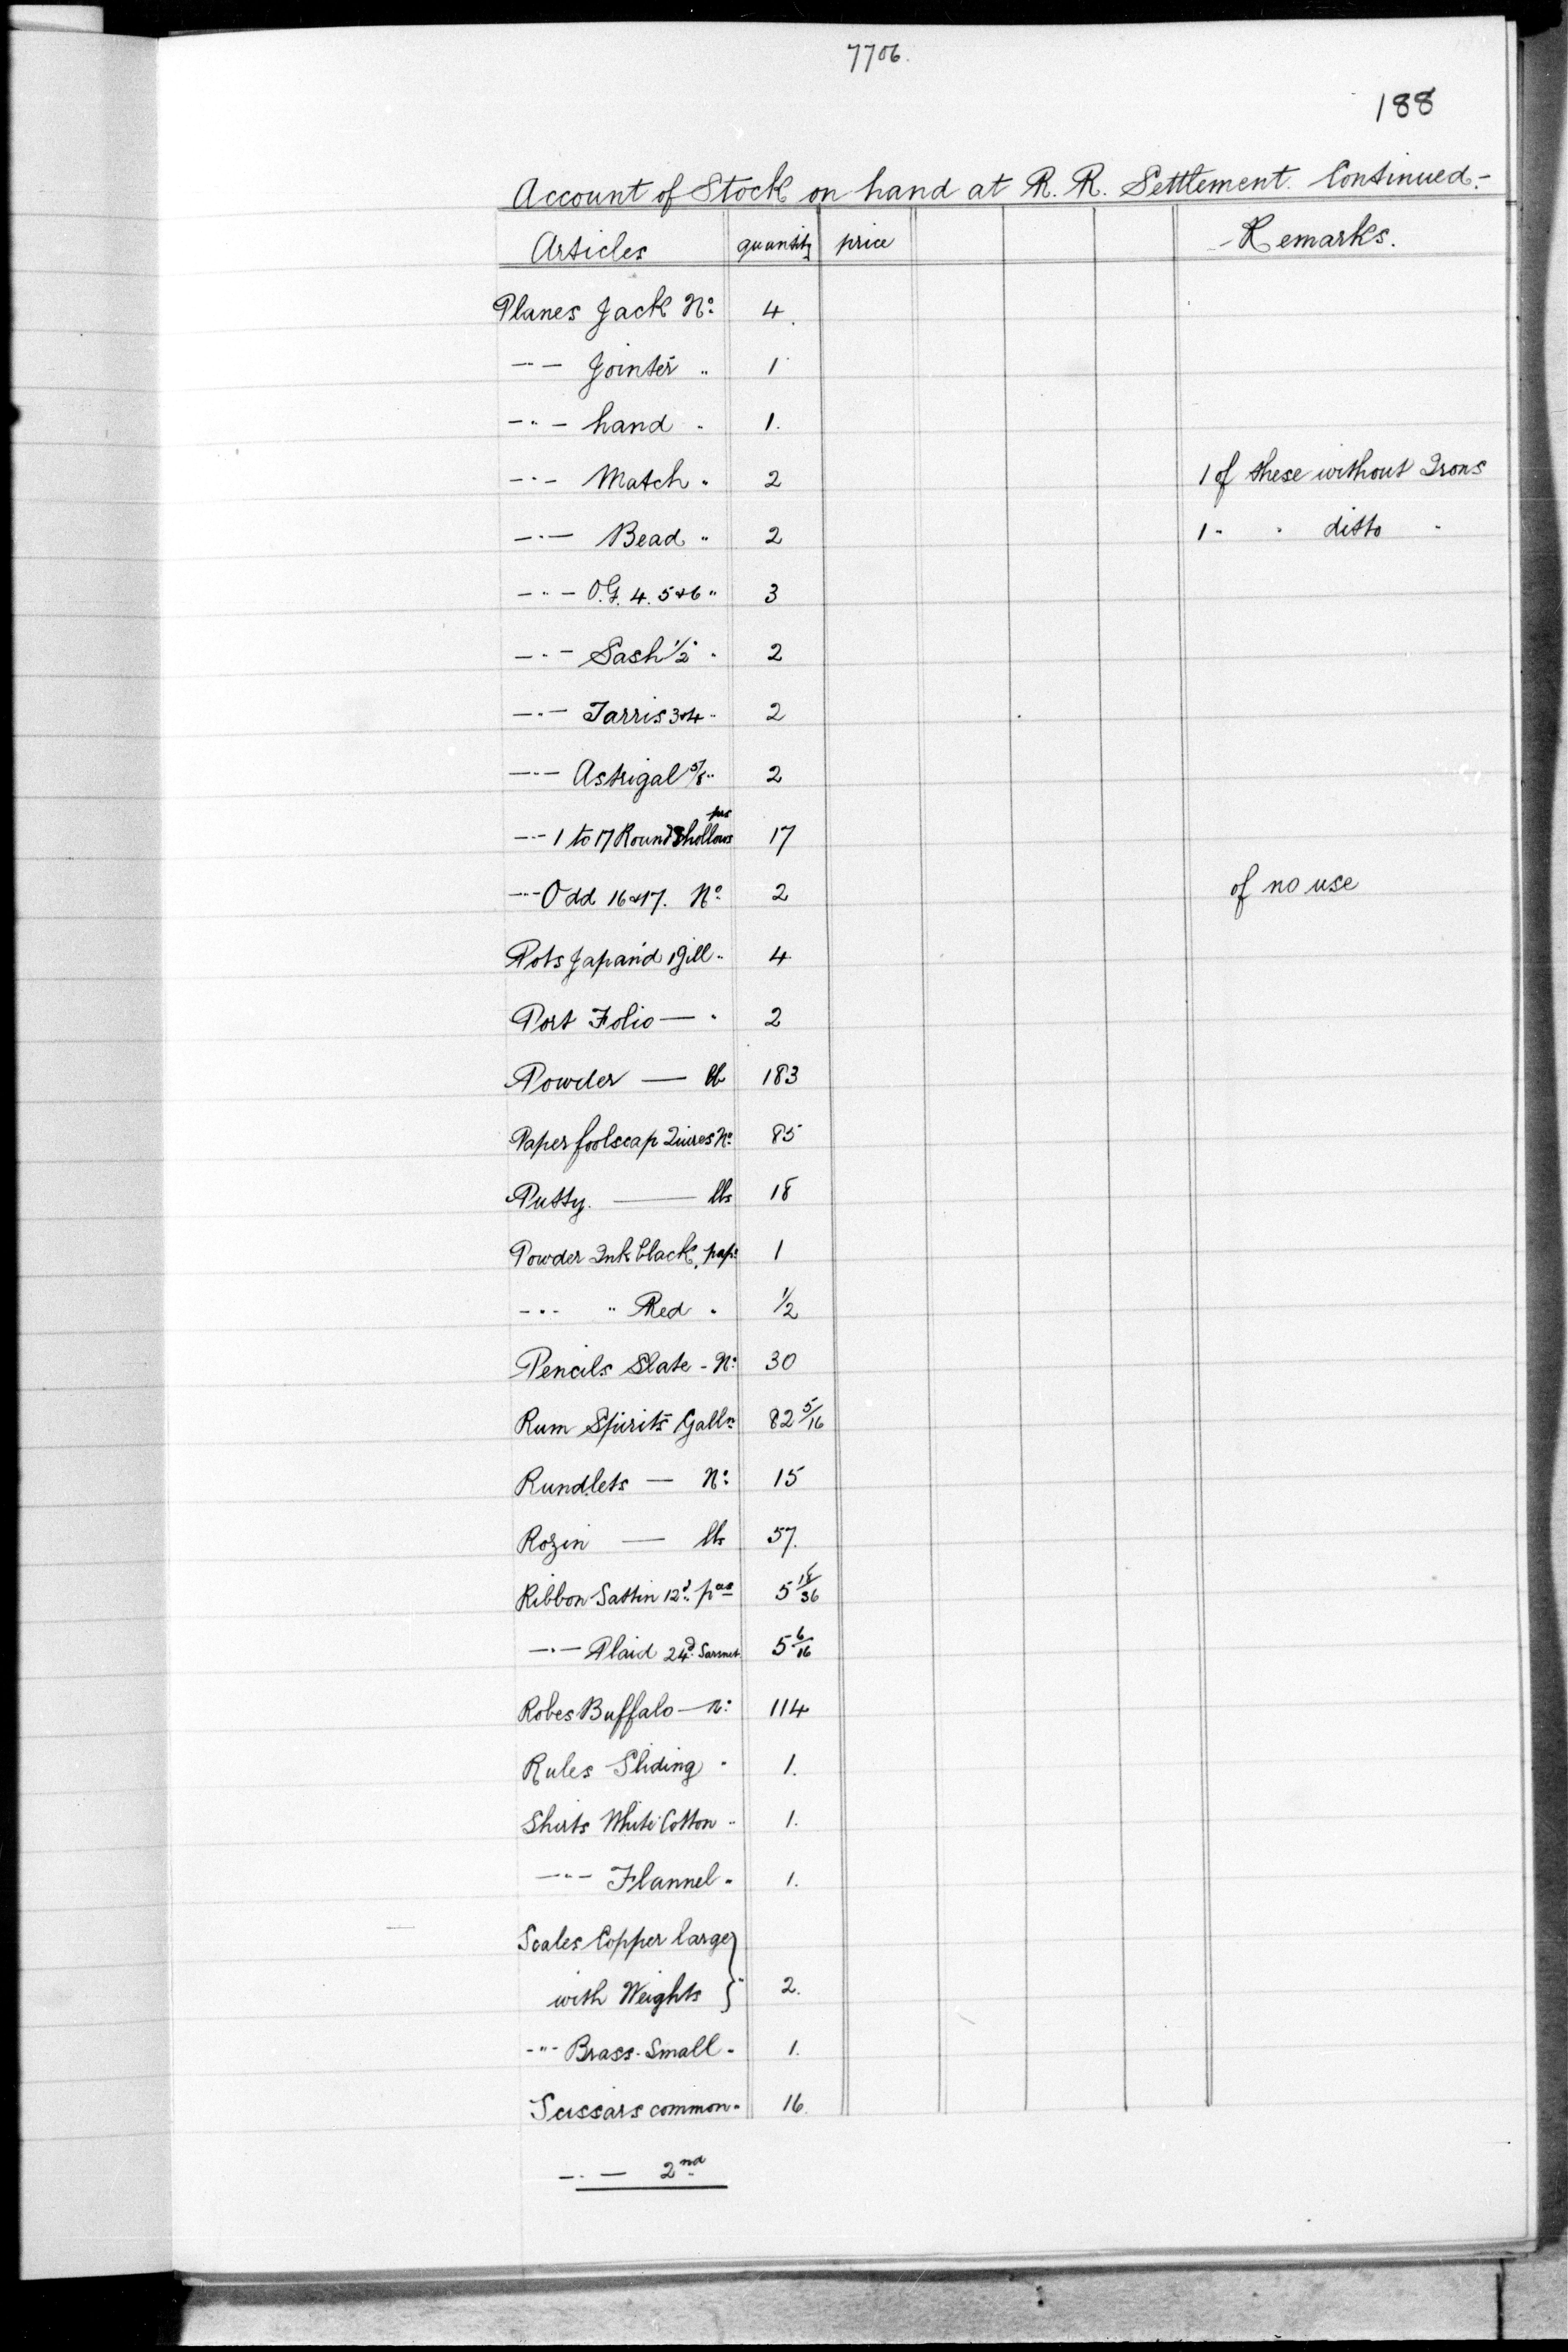 7706.
188
Account of Stock on hand at R. R. Settlement. Continued.-
Articles quantity price Remarks.
Planes Jack No. 4.
-"- Jointer " 1
-"- hand " 1.
-"- Match " 2 1 of these without Irons
-"- Bead " 2 1 " " ditto "
-"- O.G. 4. 5 & 6 " 3
-"- Sash 1/2 " 2
-"- Tarris 3 & 4 " 2
-"- Astrigal 5/8 " 2
-"- 1 to 17 Round & hollows prs 17
-"- Odd 16 & 17. No. 2 of no use
Pots Japan'd 1 Gill " 4
Port Folio — " 2
Powder — lb 183
Paper foolscap Quires No. 85
Putty. — lbs 18
Powder Ink black, pap. 1
-"- " Red " 1/2
Pencils Slate - No. 30
Rum Spirits Galls 82 5/16
Rundlets — No. 15
Rozin — lbs 57.
Ribbon Sattin 12d. pces 5 18/36
-"- Plaid 24d. Sarsnet 5 6/16
Robes Buffalo — No. 114
Rules Sliding " 1.
Shirts White Cotton " 1.
-"- Flannel " 1.
Scales Copper large
with Weights } " 2.
-"- Brass Small " 1.
Scissars common " 16.
-"- 2nd